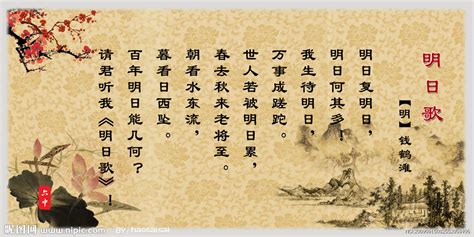 明日歌
【明】钱鹤滩
明日复明日，
明日何其多！
我生待明日，
万事成蹉跎。
世人若被明日累，
春去秋来老将至。
朝看水东流，
暮看日西坠。
百年明日能几何？
请君听我《明日歌》！
六中
昵图网 www.nipic.com BY: